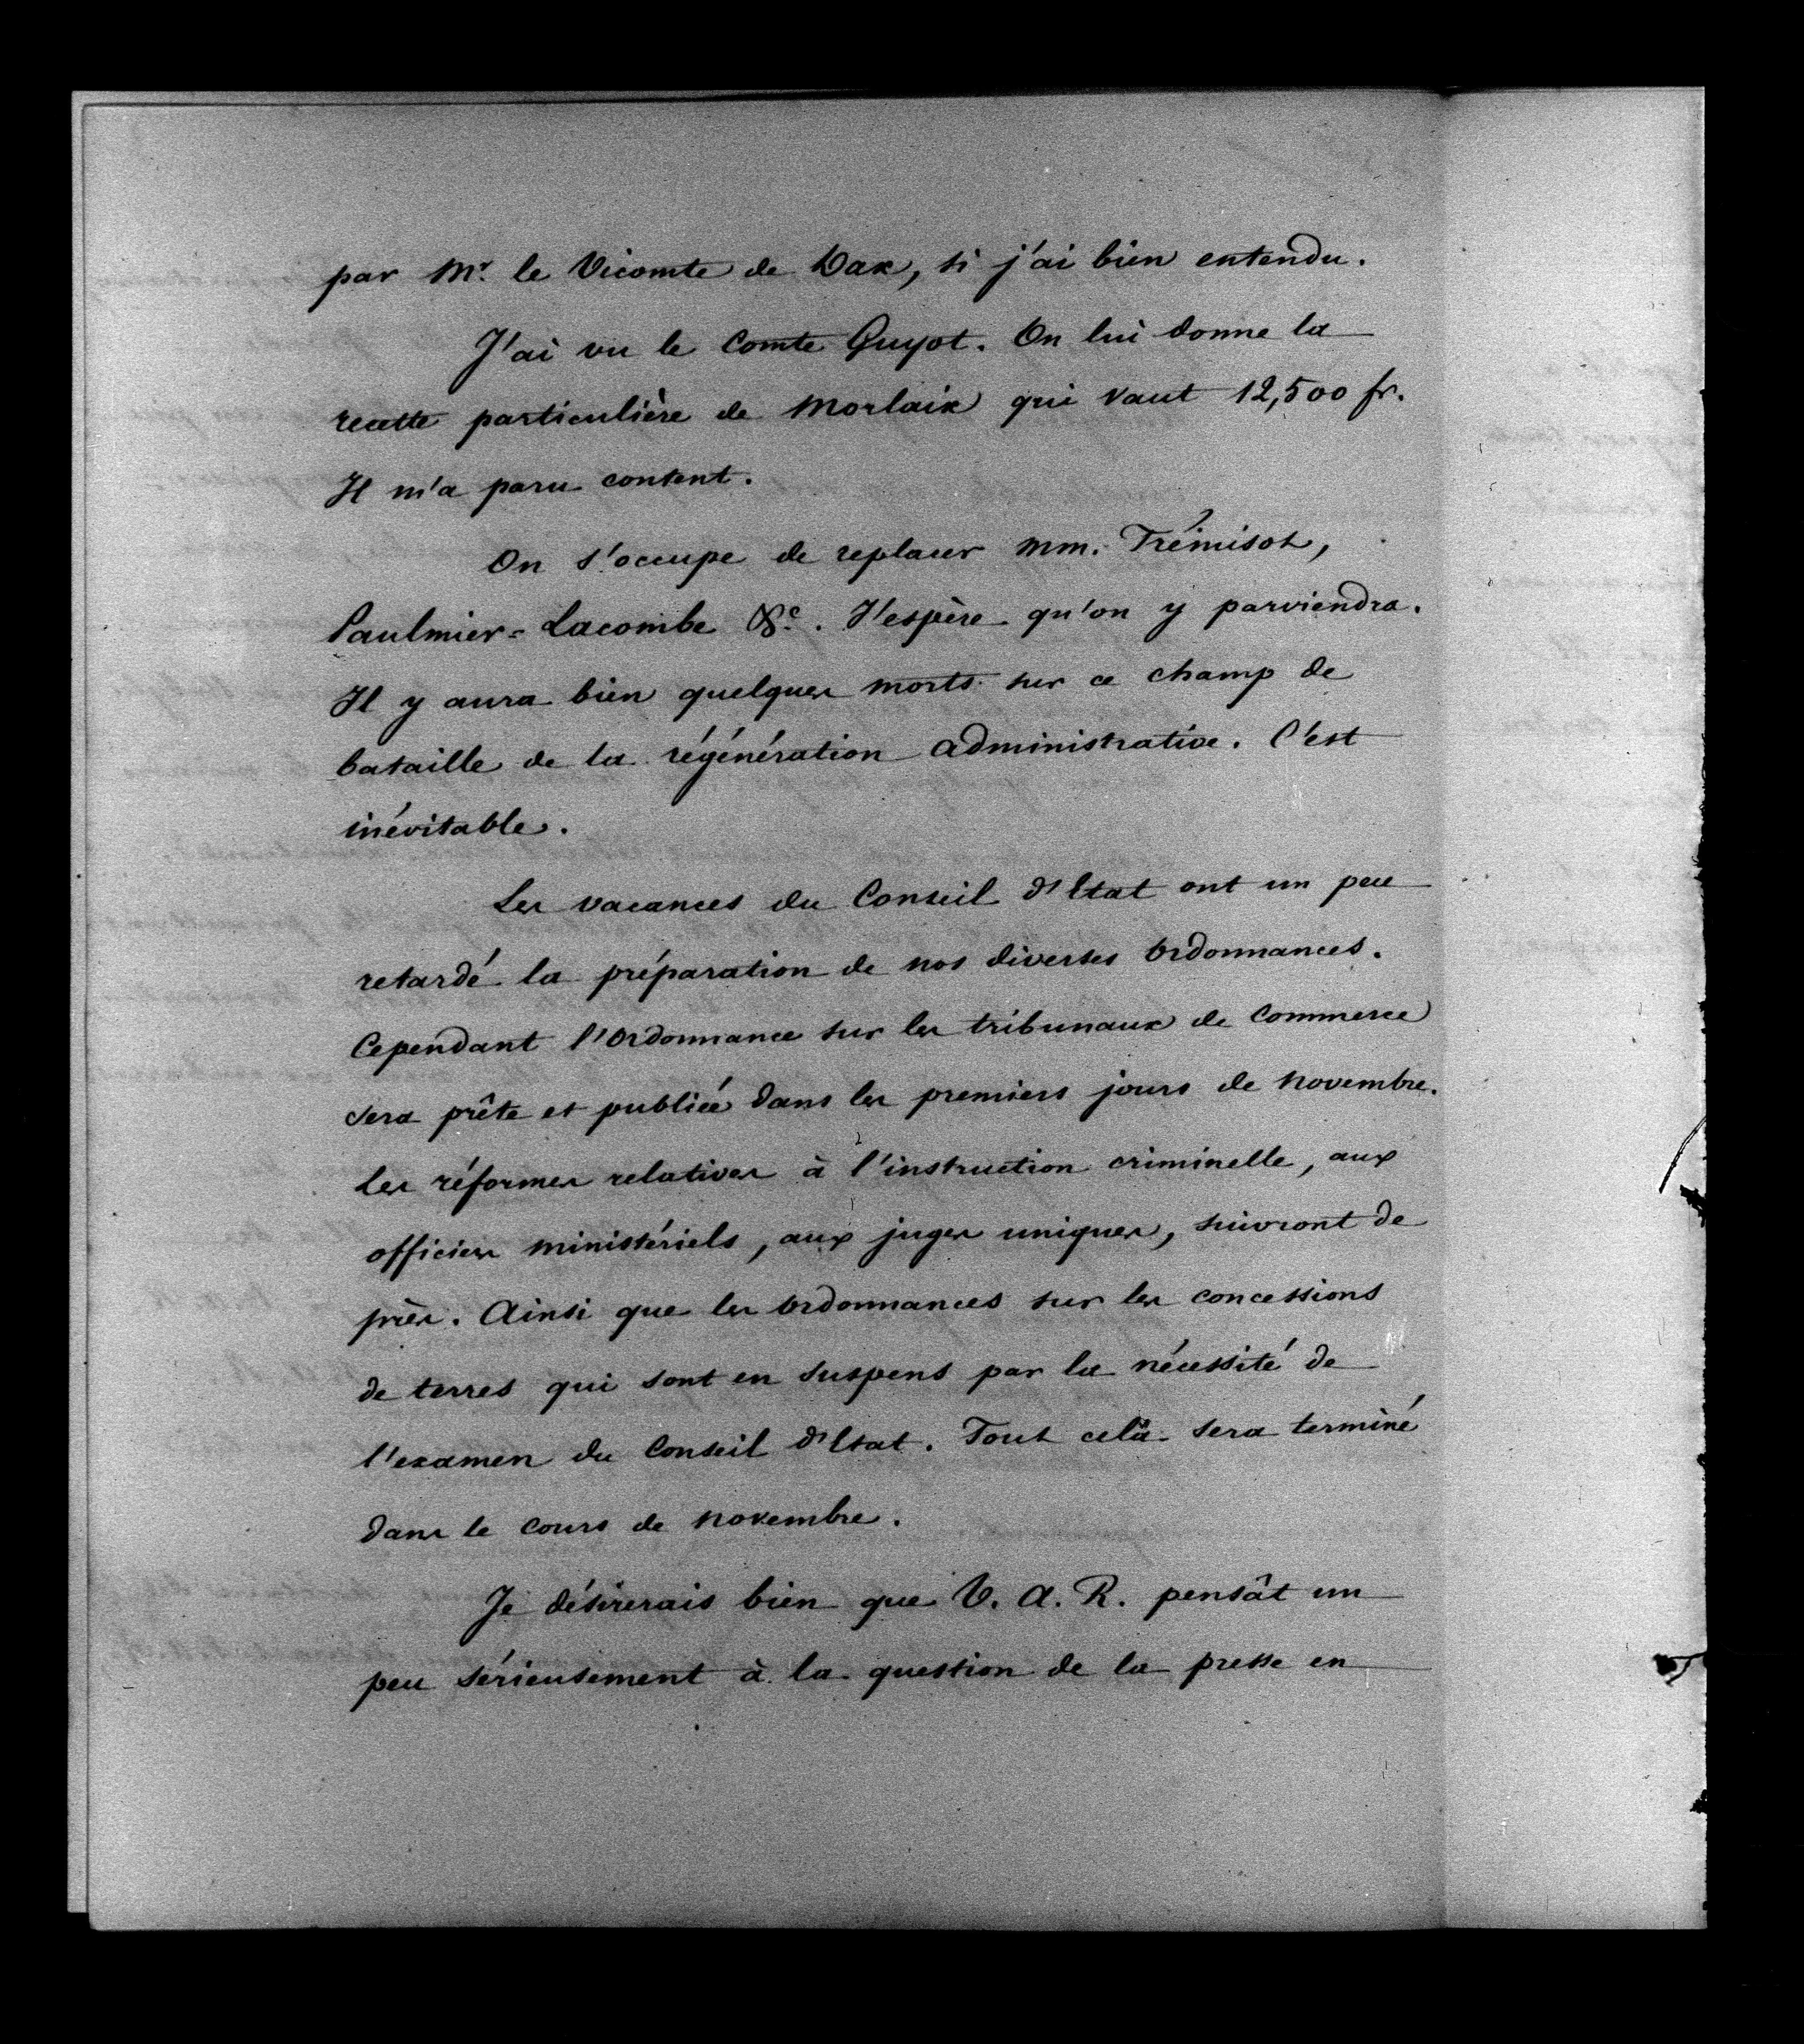 par Mr. le Vicomte de Dax, si j'ai bien entendu.
J'ai vu le Comte Guyot. On lui donne la
recette particulière de Morlaix qui vaut 12,500 fr.
Il m'a paru content.
On s'occupe de replacer MM. Trémisot,
Paulmier-Lacombe &c. J'espère qu'on y parviendra.
Il y aura bien quelques morts sur ce champ de
bataille de la régénération administrative. C'est
inévitable.
Les vacances du Conseil d'Etat ont un peu
retardé la préparation de nos diverses Ordonnances.
Cependant l'Ordonnance sur les tribunaux de Commerce
sera prête et publiée dans les premiers jours de Novembre.
Les réformes relatives à l'instruction criminelle, aux
officiers ministériels, aux juges uniques, suivront de
près. Ainsi que les Ordonnances sur les concessions
de terres qui sont en suspens par la nécessité de
l'examen du Conseil d'Etat. Tout celà sera terminé
dans le cours de Novembre.
Je désirerais bien que V. A. R. pensât un
peu sérieusement à la question de la presse en